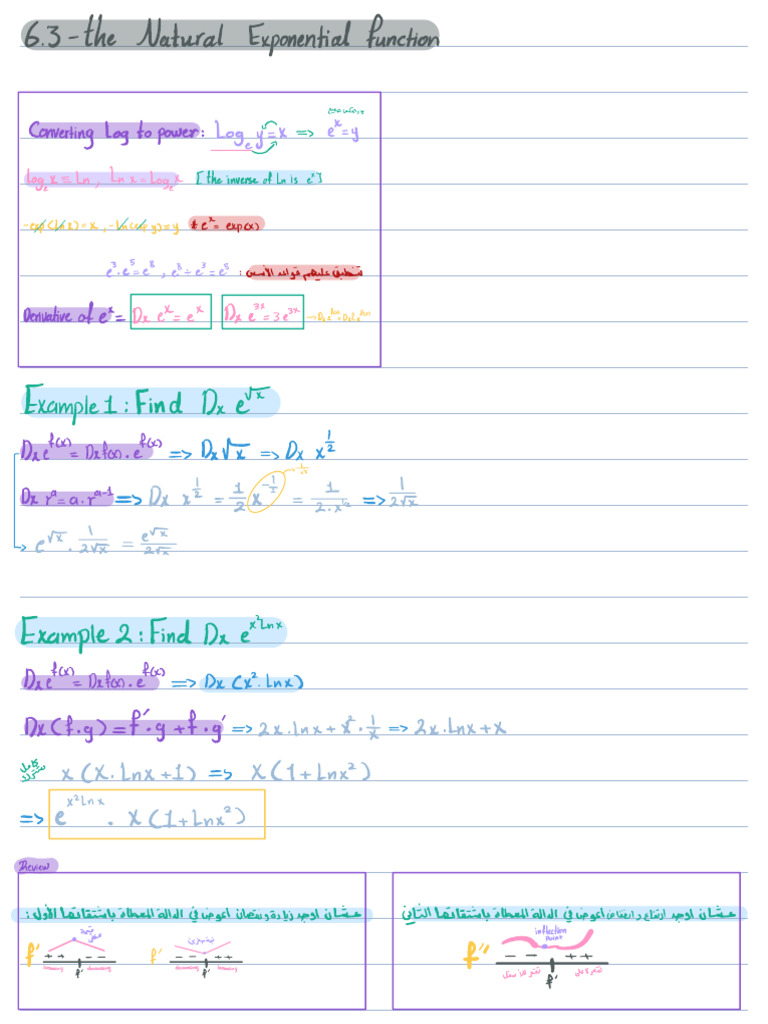 6.3-the Natural Exponential function
Converting Log to power: Logₑ y = x => eˣ = y
Logₑ x ≡ Ln , Ln x = Logₑ x [the inverse of Ln is eˣ]
-exp(Ln x) = x , -Ln(exp y) = y * eˣ = exp(x)
e³·e⁵=e⁸ , e⁸÷e³=e⁵ : تنطبق عليهم قواعد الأسس
Derivative of eˣ = Dx eˣ = eˣ Dx e³ˣ = 3e³ˣ
Example 1: Find Dx e^√x
Dx e^f(x) = Dx f(x) · e^f(x) => Dx √x => Dx x^1/2
Dx rᵃ = a·rᵃ⁻¹ => Dx x^1/2 = 1/2 x^-1/2 = 1/2·x^1/2 => 1/2√x
e^√x · 1/2√x = e^√x/2√x
Example 2: Find Dx e^x²Lnx
Dx e^f(x) = Dx f(x) · e^f(x) => Dx (x²·Lnx)
Dx(f·g) = f'·g + f·g' => 2x·lnx + x²·1/x => 2x·Lnx + x
x(x·Lnx+1) => x(1+Lnx²)
=> e^x²lnx · x(1+Lnx²)
Review
عشان اوجد زيادة ونقصان اعوض في الدالة المعطاة باشتقاقها الأول :
f' ++ -- f'
increasing decreasing
f' -- ++ f'
decreasing increasing
عشان اوجد في الدالة المعطاة باشتقاقها الثاني
inflection
Point
f'' -- ++ f'
تقعر للأسفل تقعر للأعلى